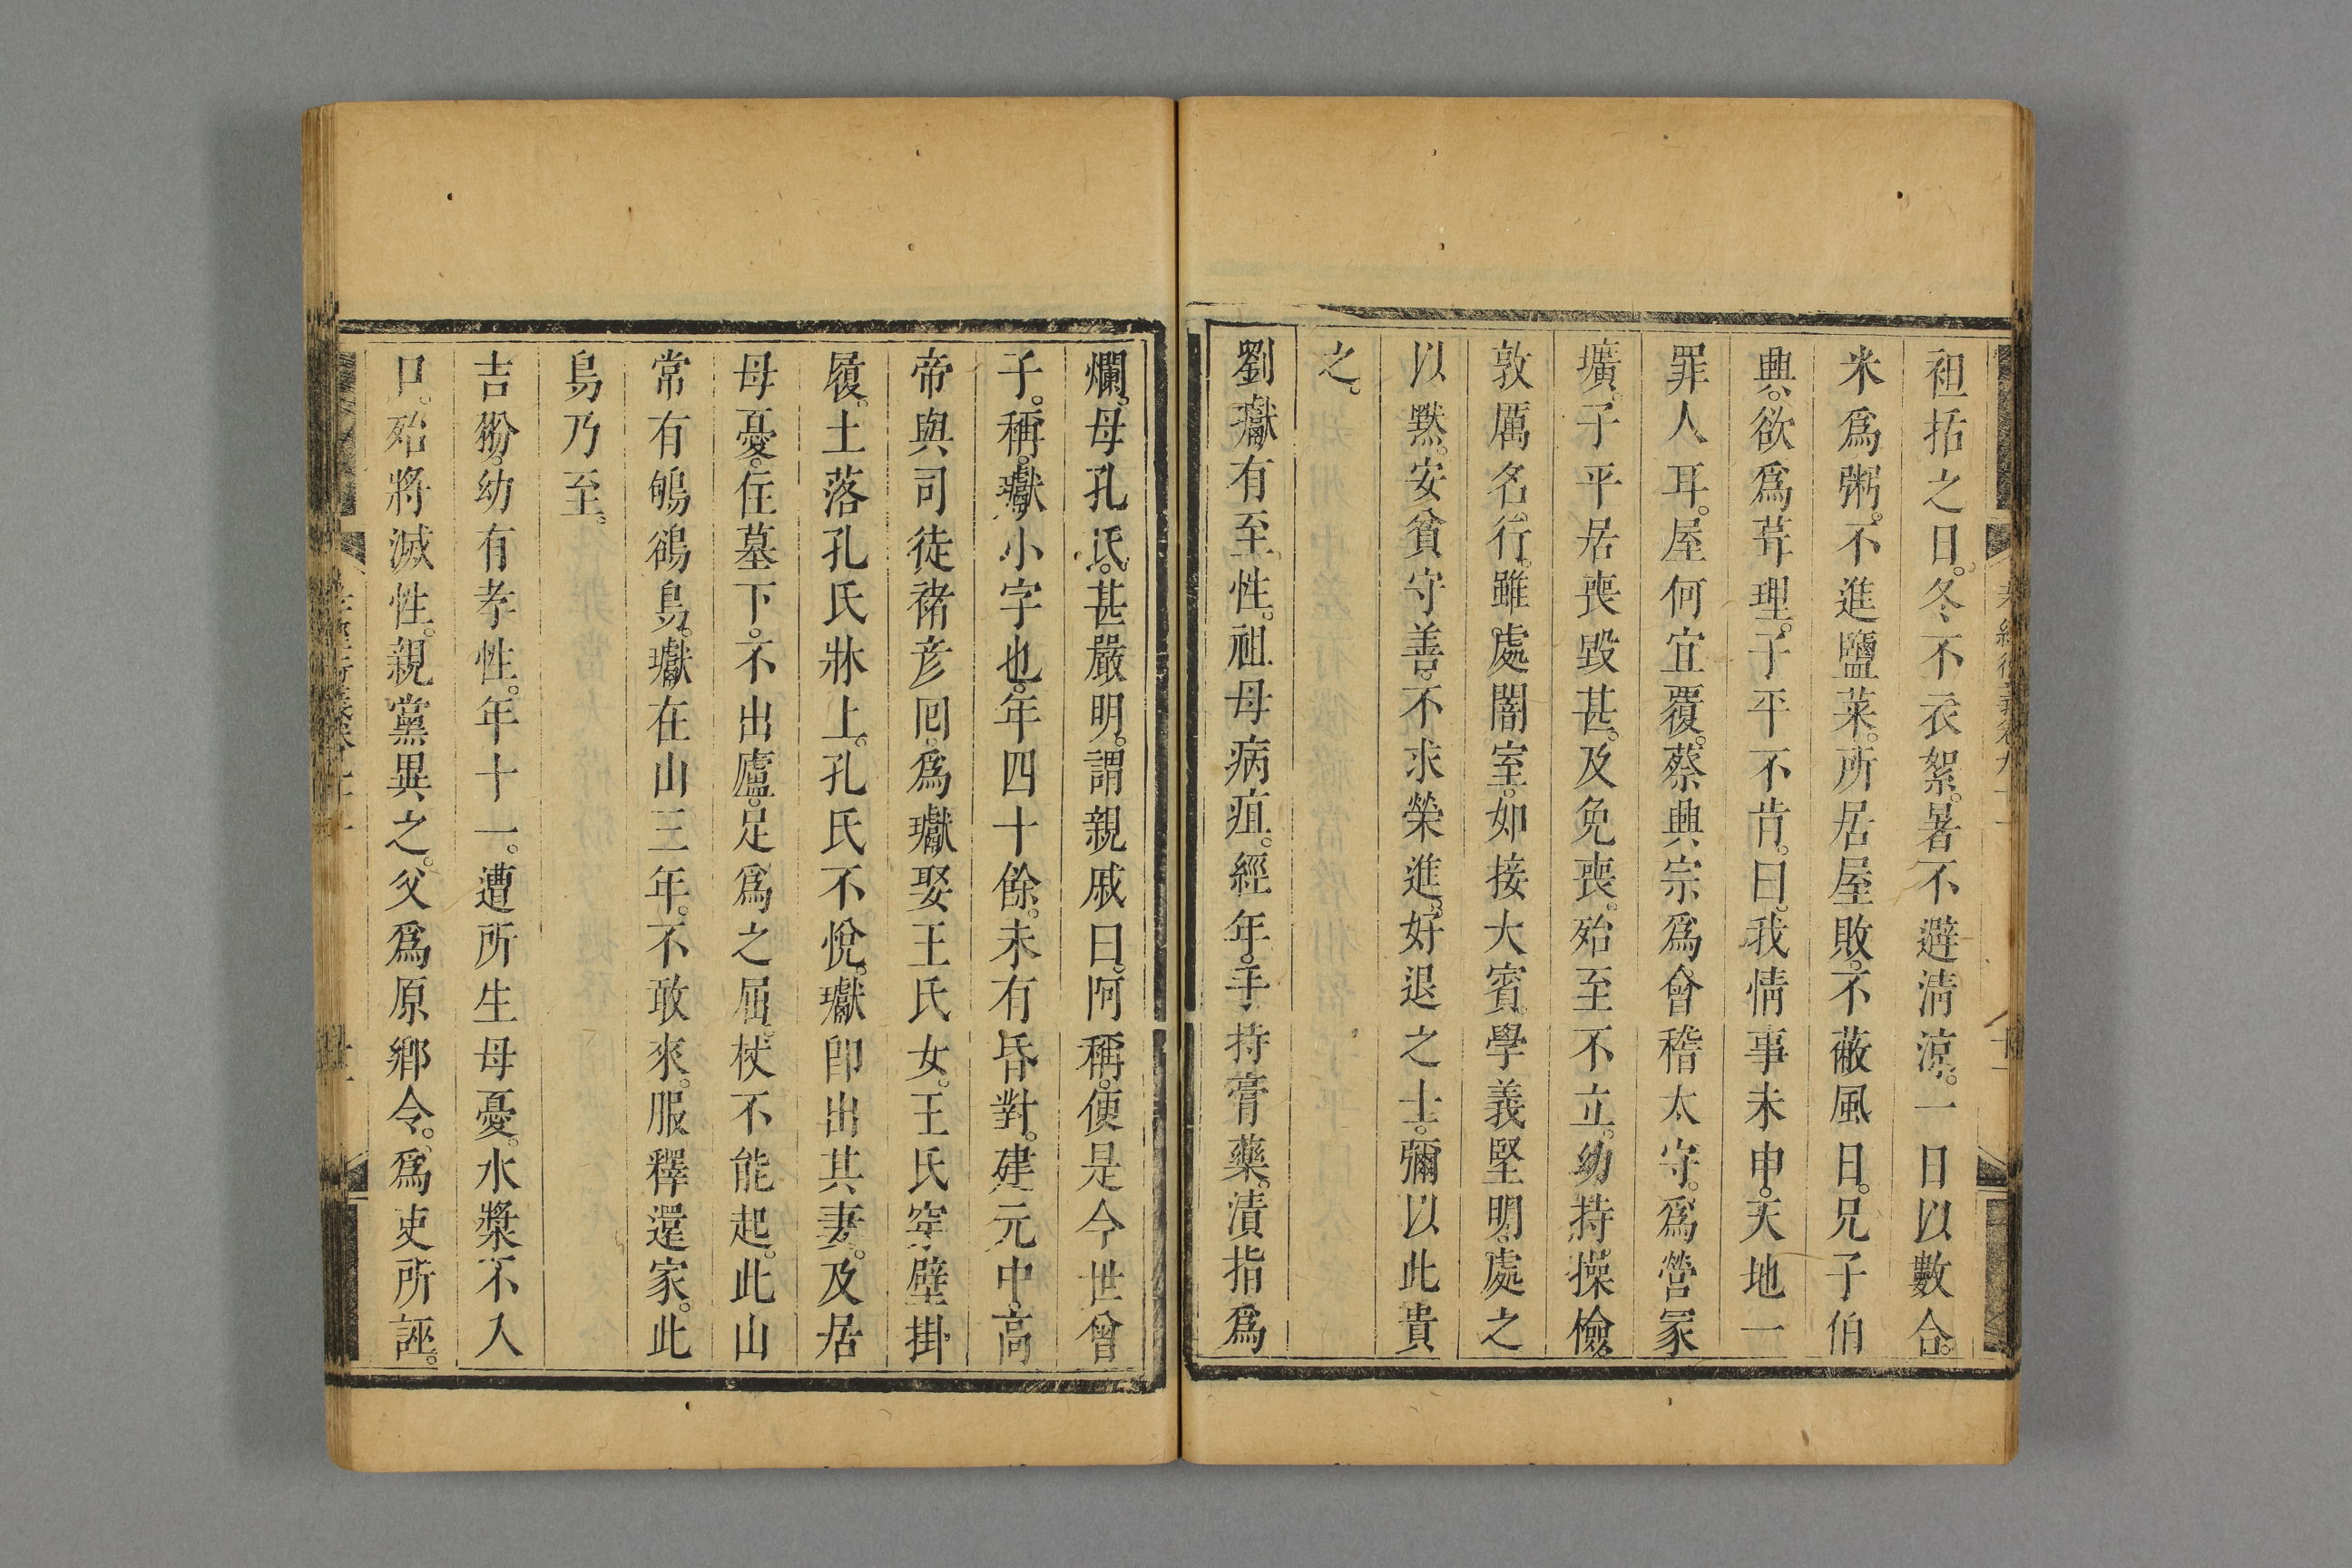 祖括之日。冬不衣絮。暑不避淸涼。一日以數合。
米爲粥。不進鹽菜。所居屋敗。不蔽風日。兄子伯
興。欲爲葺理。子平不肯。曰。我情事未申。天地一
罪人耳。屋何宜覆。蔡興宗爲會稽太守。爲營冢
壙。子平居喪毀甚。及免喪。殆至不立。幼持操檢。
敦厲名行。雖處闇室。如接大賓。學義堅明。處之
以默。安貧守善。不求榮進。好退之士。彌以此貴
之。
劉瓛有至性。祖母病疽。經年。手持膏藥。漬指爲
爛。母孔氏。甚嚴明。謂親戚曰。阿稱。便是今世曾
子。稱。瓛小字也。年四十餘。未有昏對。建元中。高
帝與司徒褚彥囘。爲瓛娶王氏女。王氏穿壁掛
履。土落孔氏牀上。孔氏不悅。瓛卽出其妻。及居
母憂。住墓下。不出廬。足爲之屈。杖不能起。此山
常有鴝鵒鳥。瓛在山三年。不敢來。服釋還家。此
鳥乃至。
吉翂。幼有孝性。年十一。遭所生母憂。水漿不入
口。殆將滅性。親黨異之。父爲原鄉令。爲吏所誣。